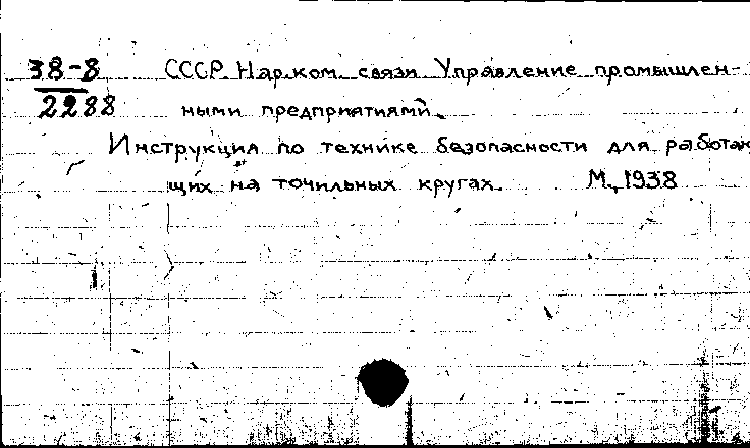 38-8 СССР. Нар.ком. связи Управление промышлен-
2288 ными предприятиями.
Инструкция по технике безопасности для работаю
щих на точильных кругах. М., 1938